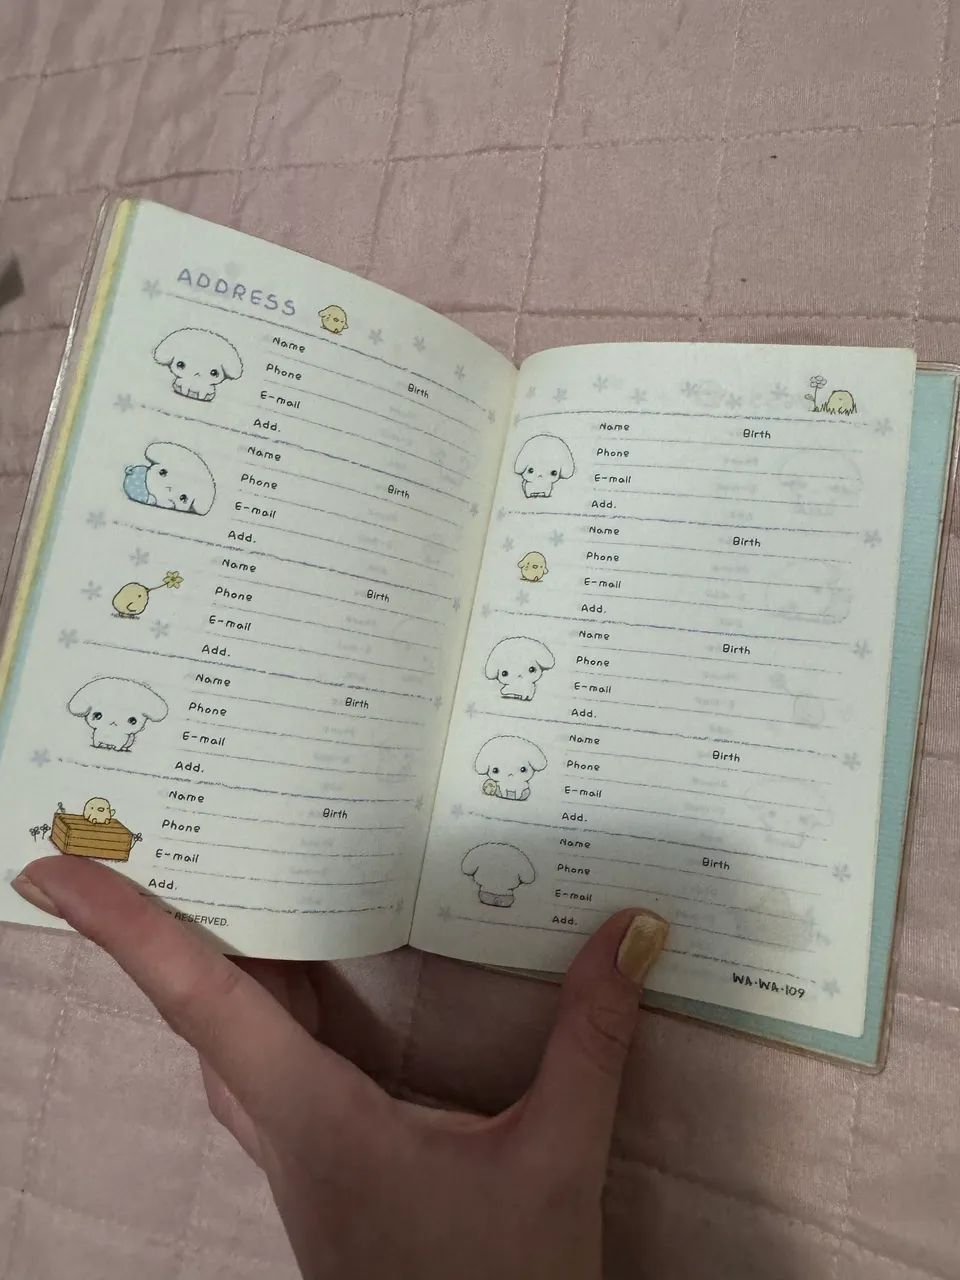 ADDRESS
Name
Phone Birth
E-mail
Add.
Name
Phone Birth
E-mail
Add.
Name
Phone Birth
E-mail
Add.
Name
Phone Birth
E-mail
Add.
Name
Phone Birth
E-mail
Add.
RESERVED.
Name Birth
Phone
E-mail
Add.
Name Birth
Phone
E-mail
Add.
Name Birth
Phone
E-mail
Add.
Name Birth
Phone
E-mail
Add.
Name Birth
Phone
E-mail
Add.
WA•WA•109